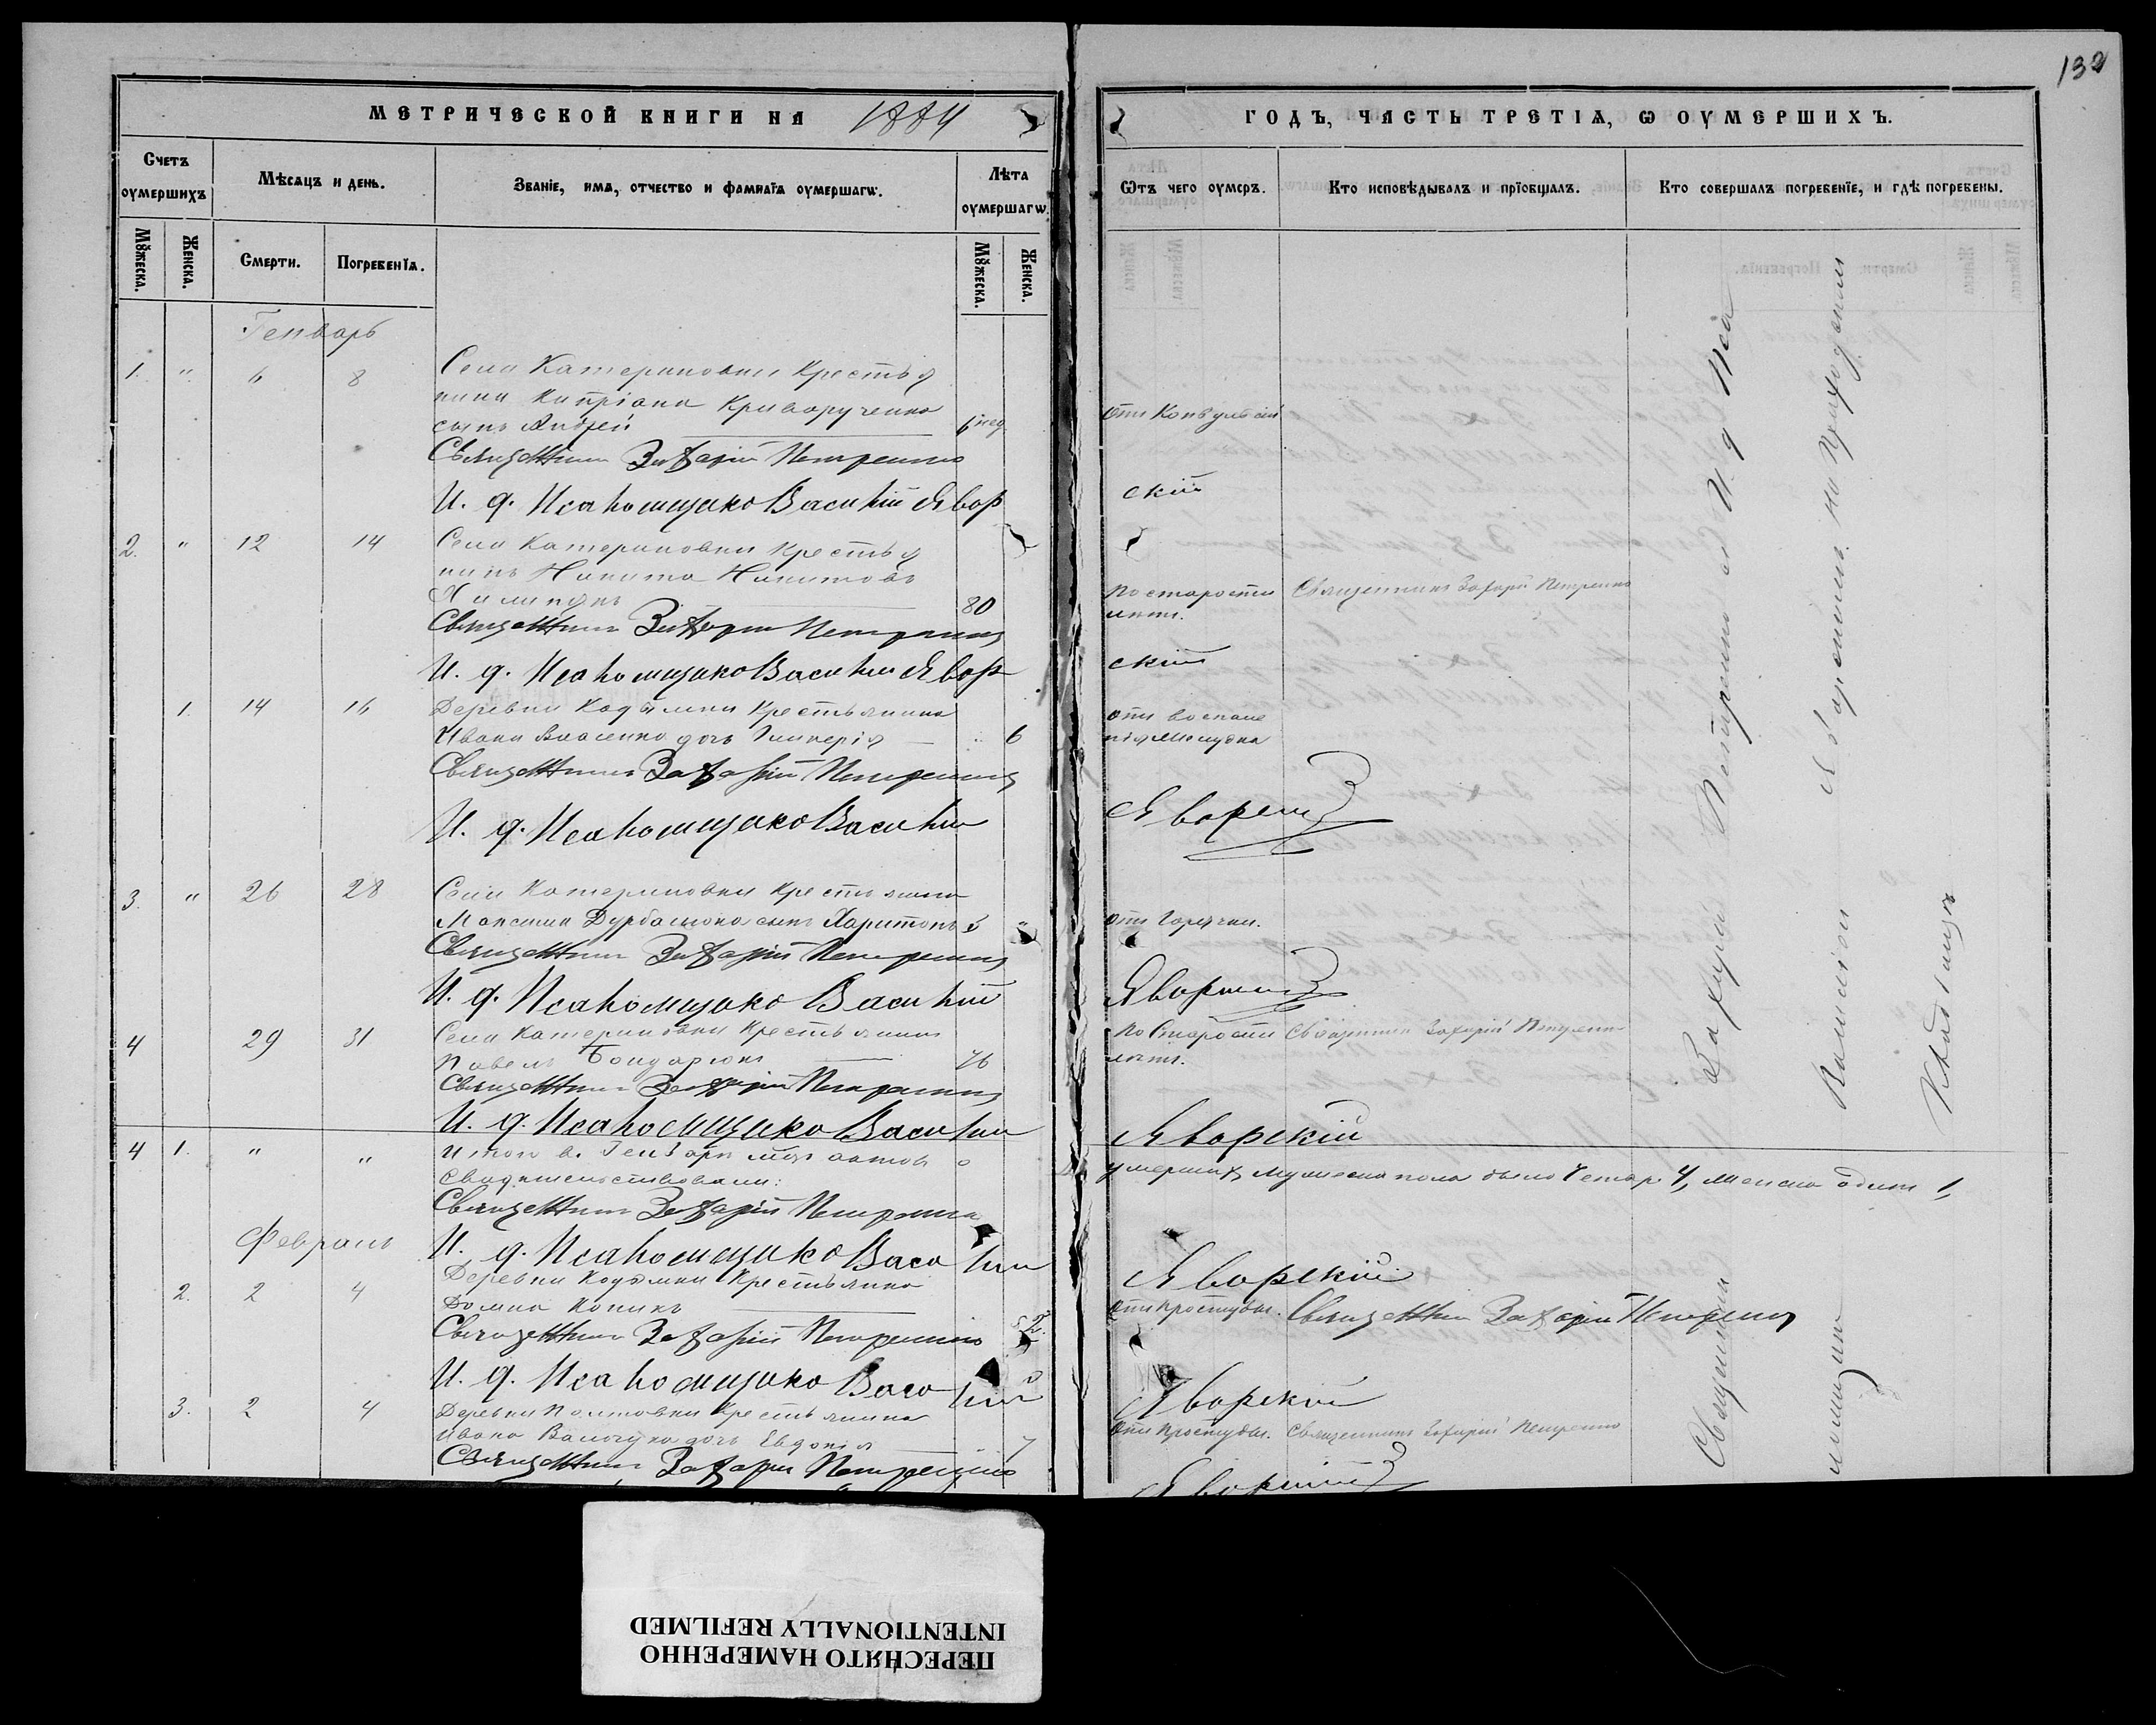 132
МЕТРИЧЕСКОЙ КНИГИ НА 1884
ГОДЪ, ЧАСТЬ ТРЕТІЯ, Ѡ ОУМЕРШИХЪ.
Счетъ оумершихъ
Мѣсяцъ и день.
Званіе, имя, отчество и фамилія оумершагѡ.
Лѣта оумершагѡ.
Ѿтъ чего оумеръ.
Кто исповѣдывалъ и пріобщалъ.
Кто совершалъ погребеніе, и гдѣ погребены.
Мꙋжеска.
Женска.
Смерти.
Погребенія.
Мꙋжеска.
Женска.
Генварь
1. " 6 8 Села Катериновки Крестья
нина Кипріана Криворученко
сынъ Андрей 6 нед. отъ Конвульсій
Священникъ Захарій Петренко
И. д. Псаломщика Василій Явор ский
2. " 12 14 Села Катериновки Крестья
нинъ Никита Никитовъ
80 по старости Священникъ Захарій Петренко
лѣтъ.
Священникъ Захарій Петренко
И. д. Псаломщика Василій Явор скій
1. 14 16 Деревни Кодымки Крестьянина
Ивана Власенко дочь Гликерія 6 отъ воспале
нія желудка
Священникъ Захарій Петренко
И. д. Псаломщика Василій Яворскій
3. " 26 28 Села Катериновки Крестьянина
Максима сынъ Харитонъ отъ Горячки.
Священникъ Захарій Петренко
И. д. Псаломщика Василій Яворскій
4 29 31 Села Катериновки Крестьянинъ
Павелъ Бондарюкъ 76 по Старости Священникъ Захарій Петренко
лѣтъ.
Священникъ Захарій Петренко
И. д. Псаломщика Василій Яворскій
4 1. " " Итого въ Генварѣ мцѣ умершихъ мужеска пола было Четыр. 4, женска одинъ 1,
Свидѣтельствовали:
Священникъ Захарій Петренко
Февраль
И. д. Псаломщика Василій Яворскій
2. 2 4 Деревни Кодымки Крестьянка
Домна отъ простуды. Священникъ Захарій Петренко
Священникъ Захарій Петренко
И. д. Псаломщика Василій Яворскій
3. 2 4 Деревни Крестьянина
Ивана дочь Евдокія 7 отъ простуды. Священникъ Захарій Петренко
Священникъ Захарій Петренко
Яворскій
Священникъ Захарій Петренко и И. д. Пса
ломщика Василій Яворскій на приходскомъ
Кладбищѣ
ПЕРЕСНЯТО НАМЕРЕННО
INTENTIONALLY REFILMED